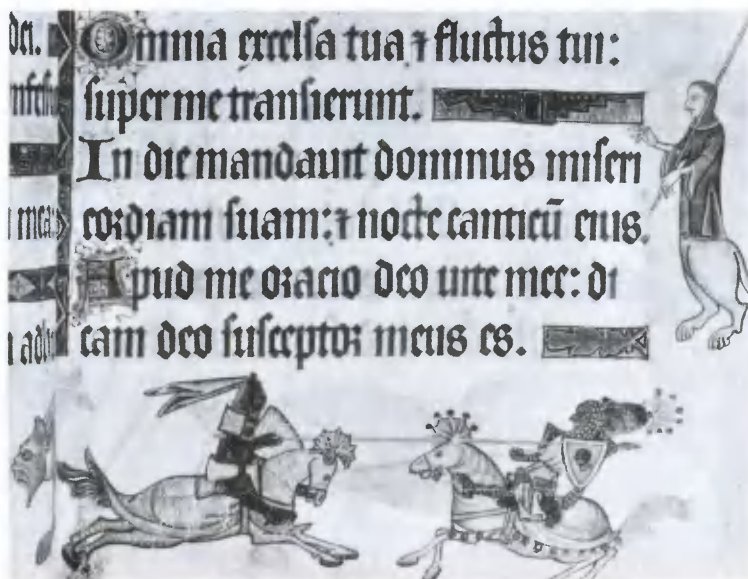 dei.
mea:
Omnia excelsa tua ⁊ fluctus tui:
super me transierunt.
In die mandauit dominus miseri
cordiam suam: ⁊ nocte canticū eius.
Apud me oracio deo uite mee: di
cam deo susceptor meus es.